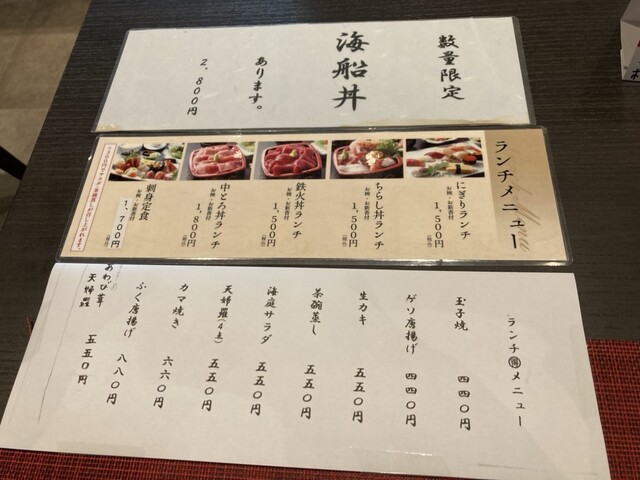 数量限定
海船丼
あります。
2,800円
ランチメニュー
にぎりランチ
お椀・お新香付
1,500円
(税込)
ちらし丼ランチ
お椀・お新香付
1,500円
(税込)
鉄火丼ランチ
お椀・お新香付
1,500円
(税込)
中とろ丼ランチ
お椀・お新香付
1,800円
(税込)
刺身定食
お椀・お新香付
1,700円
(税込)
ランチ㊙メニュー
玉子焼 四四〇円
ゲソ唐揚げ 四四〇円
生カキ 五五〇円
茶碗蒸し 五五〇円
海庭サラダ 五五〇円
天婦羅(4本) 五五〇円
カマ焼き 六六〇円
ふぐ唐揚げ 八八〇円
あわび茸
天婦羅 五五〇円